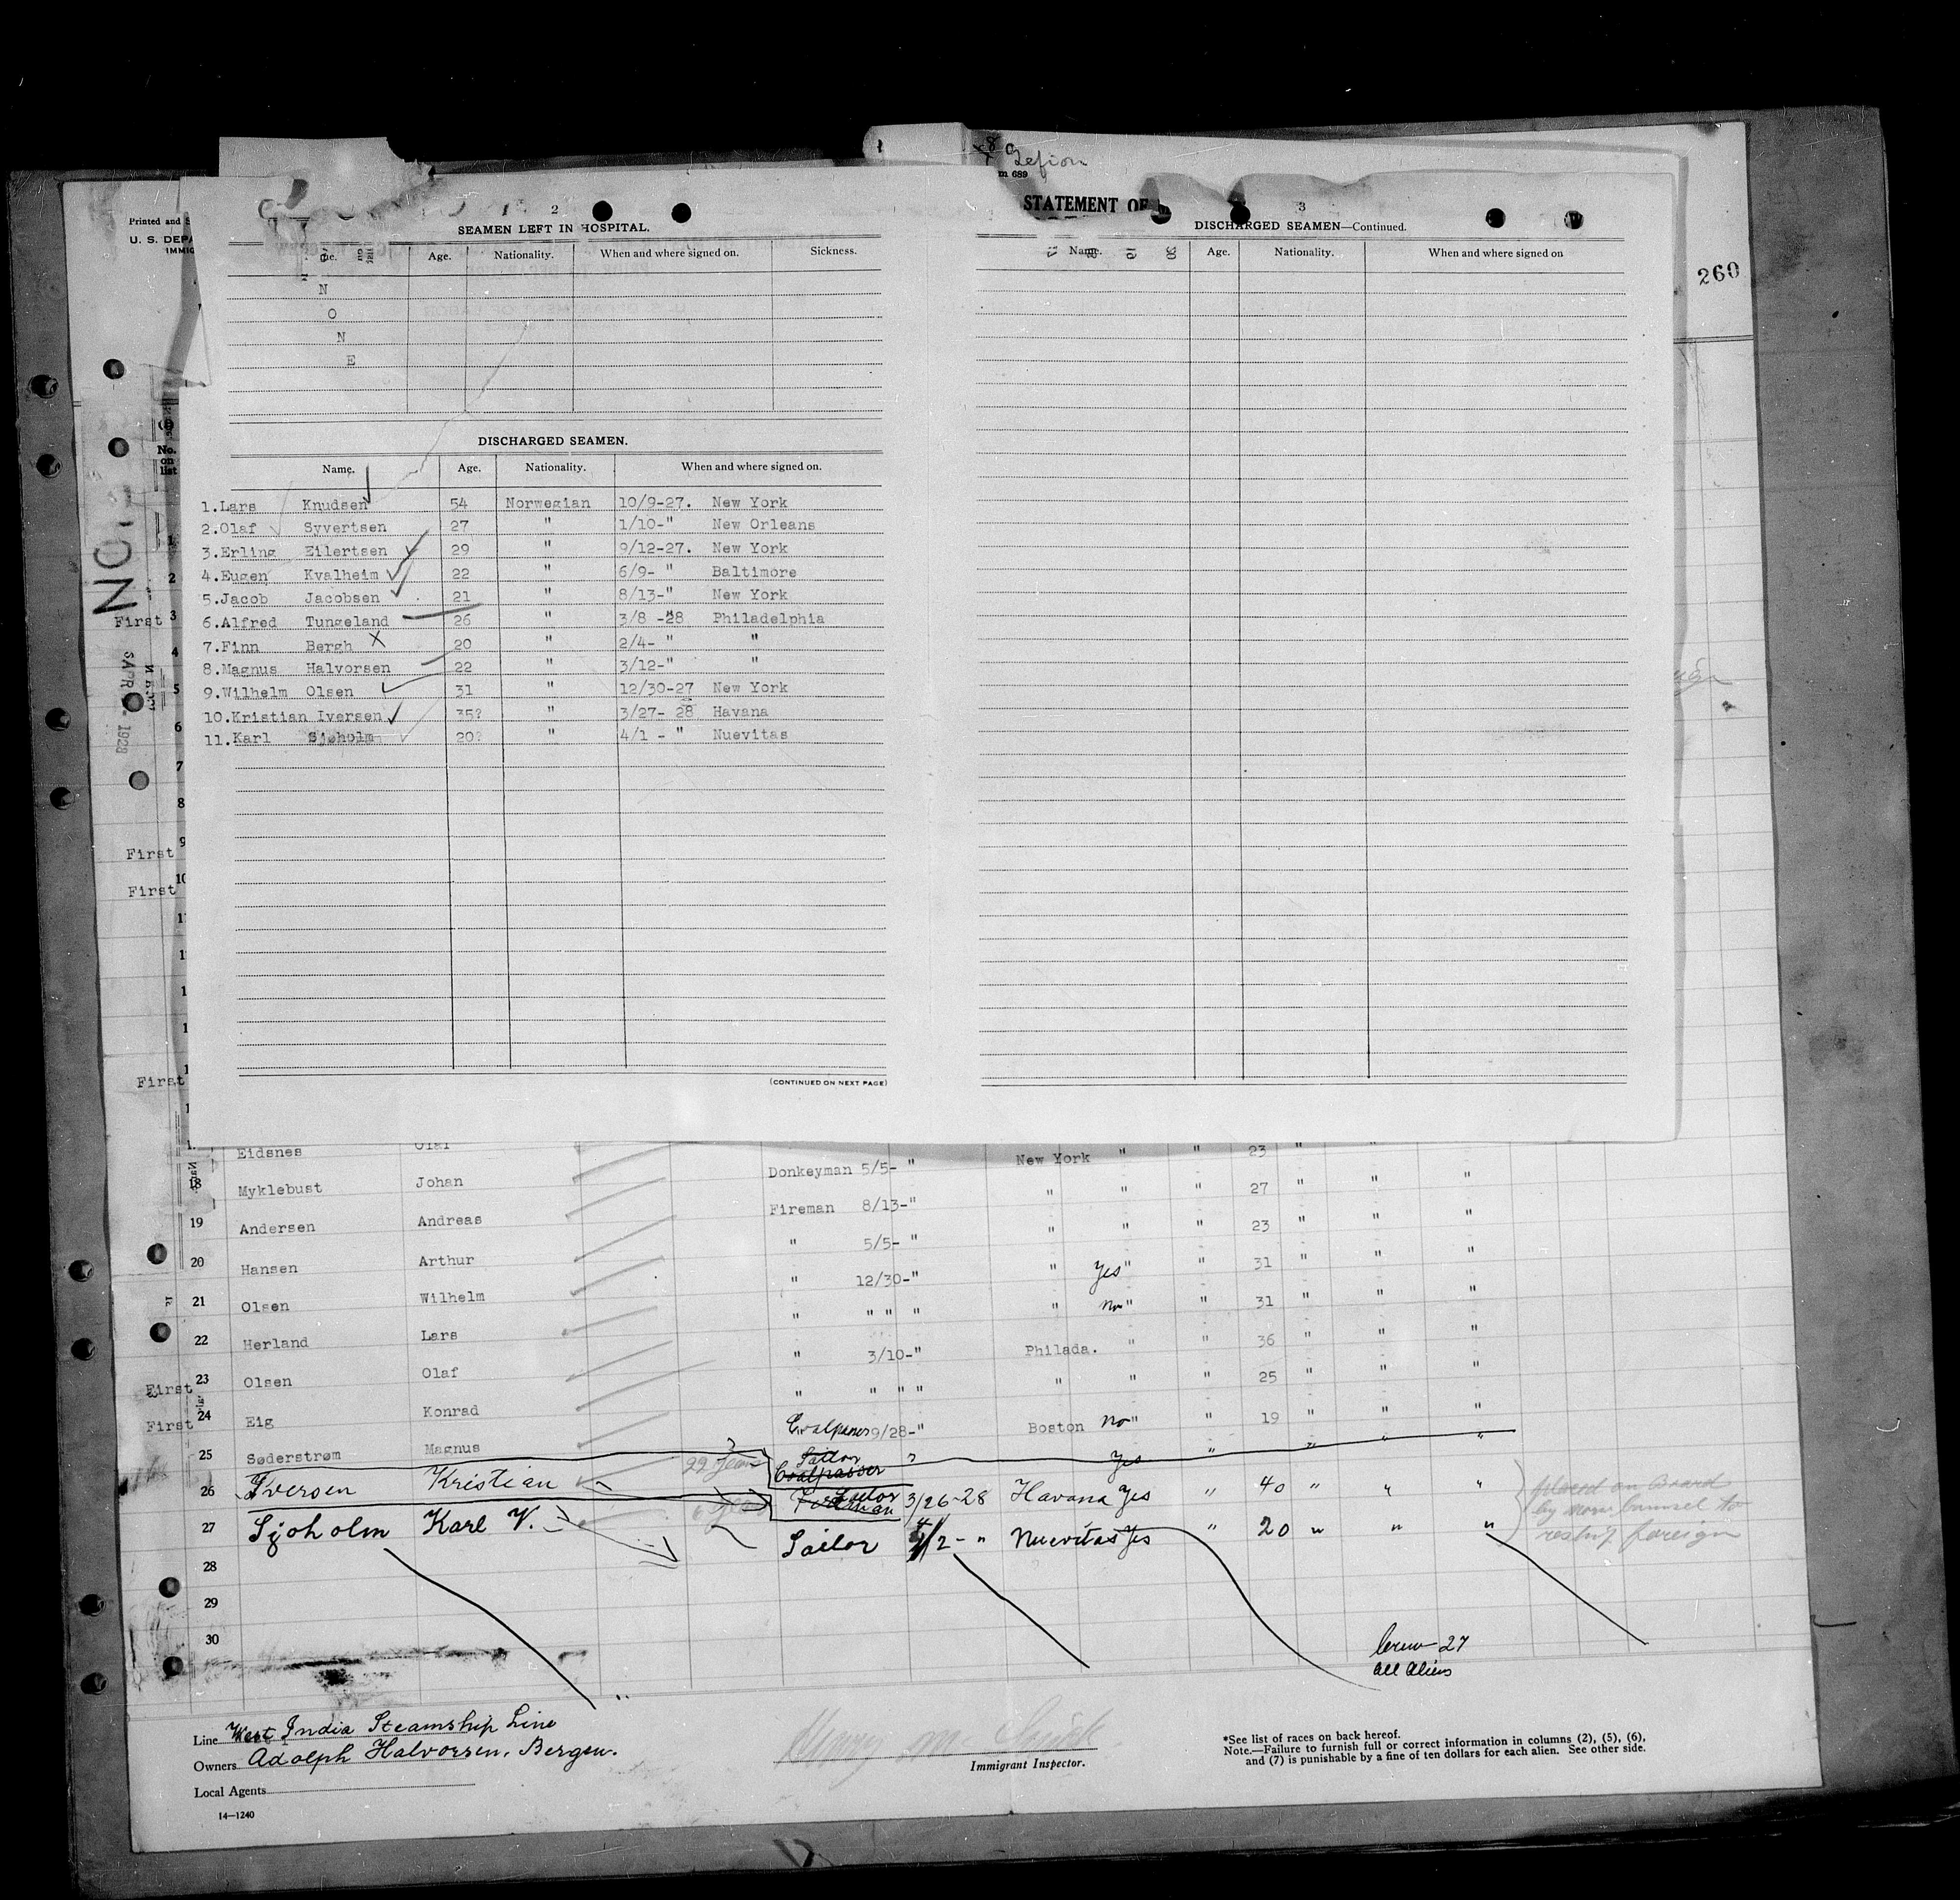 Gefion
m 689
STATEMENT OF
Printed and S
U. S. DEPA
IMMIG
260
2
SEAMEN LEFT IN HOSPITAL.
ne. Age. Nationality. When and where signed on. Sickness.
N
O
N
E
DISCHARGED SEAMEN.
Name. Age. Nationality. When and where signed on.
1. Lars Knudsen 54 Norwegian 10/9-27. New York
2. Olaf Syvertsen 27 " 1/10-" New Orleans
3. Erling Eilertsen 29 " 9/12-27. New York
4. Eugen Kvalheim 22 " 6/9- " Baltimore
5. Jacob Jacobsen 21 " 8/13-" New York
6. Alfred Tungeland 26 " 3/8 -"28 Philadelphia
7. Finn Bergh X 20 " 2/4- " "
8. Magnus Halvorsen 22 " 3/12-" "
9. Wilhelm Olsen 31 " 12/30-27 New York
10. Kristian Iversen 35? " 3/27- 28 Havana
11. Karl Sjøholm 20? " 4/1 - " Nuevitas
(CONTINUED ON NEXT PAGE)
3
DISCHARGED SEAMEN—Continued.
Name. Age. Nationality. When and where signed on
No.
on
list
1
2
First 3
4
5
6
7
8
First 9
First 10
First
Eidsnes Olaf Donkeyman 5/5- " New York " " 23 "
18 Myklebust Johan Fireman 8/13-" " " " 27 " " "
19 Andersen Andreas " 5/5- " " " " 23 " " "
20 Hansen Arthur " 12/30-" " Yes " " 31 " " "
21 Olsen Wilhelm " " " " " No " " 31 " " "
22 Herland Lars " 3/10-" Philada. " " 36 " " "
First 23 Olsen Olaf " " " " " " " 25 " " "
First 24 Eig Konrad Coalpasser 9/28-" Boston No " " 19 " " "
25 Søderstrøm Magnus 22 years Sailor Coalpasser " Yes " " " "
26 Iversen Kristian Fireman Sailor 3/26-28 Havana Yes " 40 " " "
27 Sjoholm Karl V. Sailor 4/2- " Nuevitas Yes " 20 " " "
28
29
30
Crew 27
all aliens
Line West India Steamship Line
Owners Adolph Halvorsen, Bergen.
Local Agents
14—1240
Immigrant Inspector.
*See list of races on back hereof.
Note.—Failure to furnish full or correct information in columns (2), (5), (6),
and (7) is punishable by a fine of ten dollars for each alien. See other side.